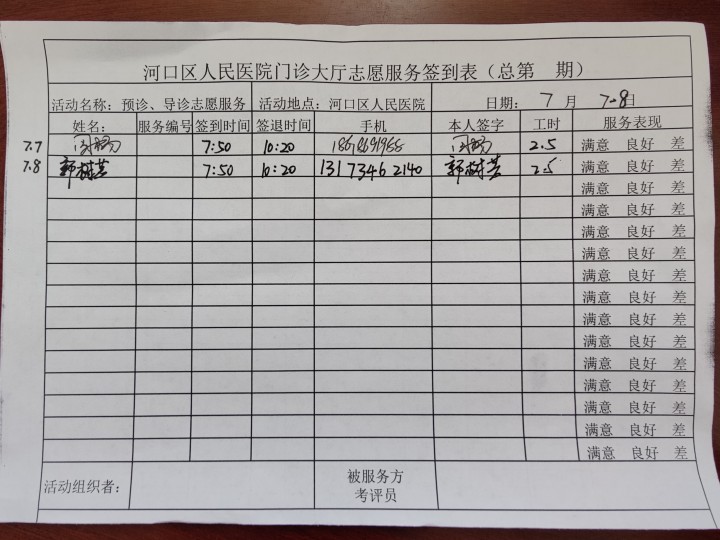 河口区人民医院门诊大厅志愿服务签到表（总第 期）
活动名称：预诊、导诊志愿服务 活动地点：河口区人民医院 日期： 7 月 7.8日
姓名： 服务编号 签到时间 签退时间 手机 本人签字 工时 服务表现
7.7 7:50 10:20 2.5 满意 良好 差
7.8 郭树芸 7:50 10:20 13173462140 郭树芸 2.5 满意 良好 差
满意 良好 差
满意 良好 差
满意 良好 差
满意 良好 差
满意 良好 差
满意 良好 差
满意 良好 差
满意 良好 差
满意 良好 差
满意 良好 差
满意 良好 差
满意 良好 差
满意 良好 差
活动组织者： 被服务方
考评员